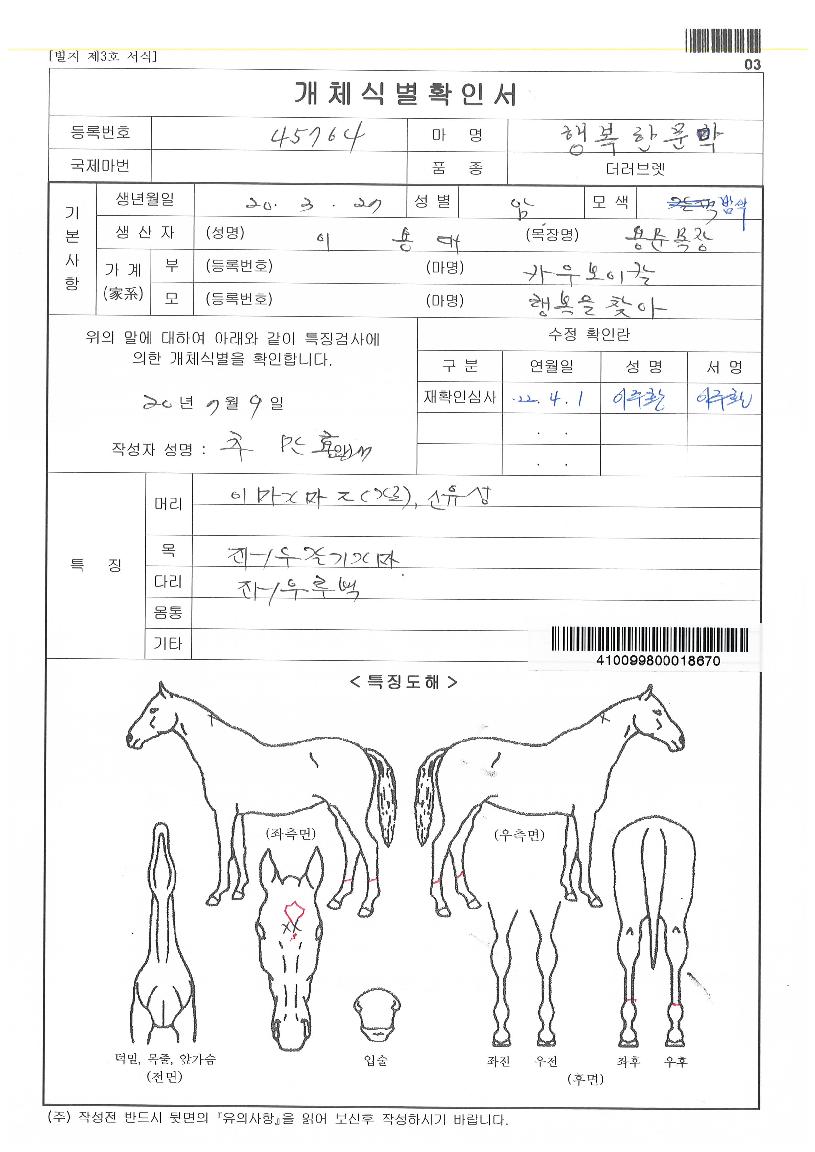 [별지 제3호 서식]
03
개체식별확인서
등록번호 45764 마 명 행복한문학
국제마번 품 종 더러브렛
기본사항
생년월일 20. 3. 27 성별 암 모색 밤색
생산자 (성명) 이용대 (목장명) 용문목장
가계 (家系) 부 (등록번호) (마명) 카우보이칼
모 (등록번호) (마명) 행복을찾아
위의 말에 대하여 아래와 같이 특징검사에
의한 개체식별을 확인합니다.
20년 7월 9일
작성자 성명 :
수정 확인란
구 분 연월일 성 명 서 명
재확인심사 22. 4. 1 이주환 이주환
. .
. .
특 징
머리
목
다리
몸통
기타
410099800018670
< 특징도해 >
(좌측면) (우측면)
턱밑, 목줄, 앞가슴
(전면)
입술
좌전 우전 좌후 우후
(후면)
(주) 작성전 반드시 뒷면의 『유의사항』을 읽어 보신후 작성하시기 바랍니다.